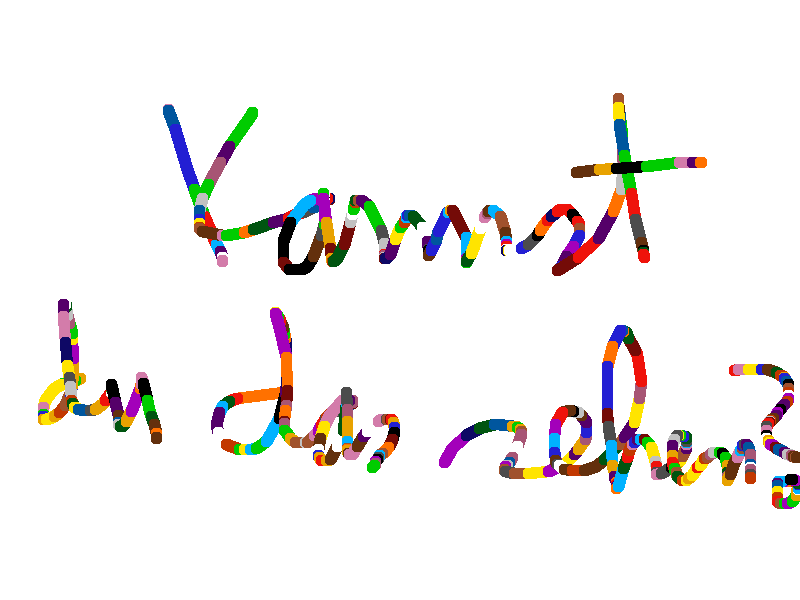 Kannst
du das sehen?